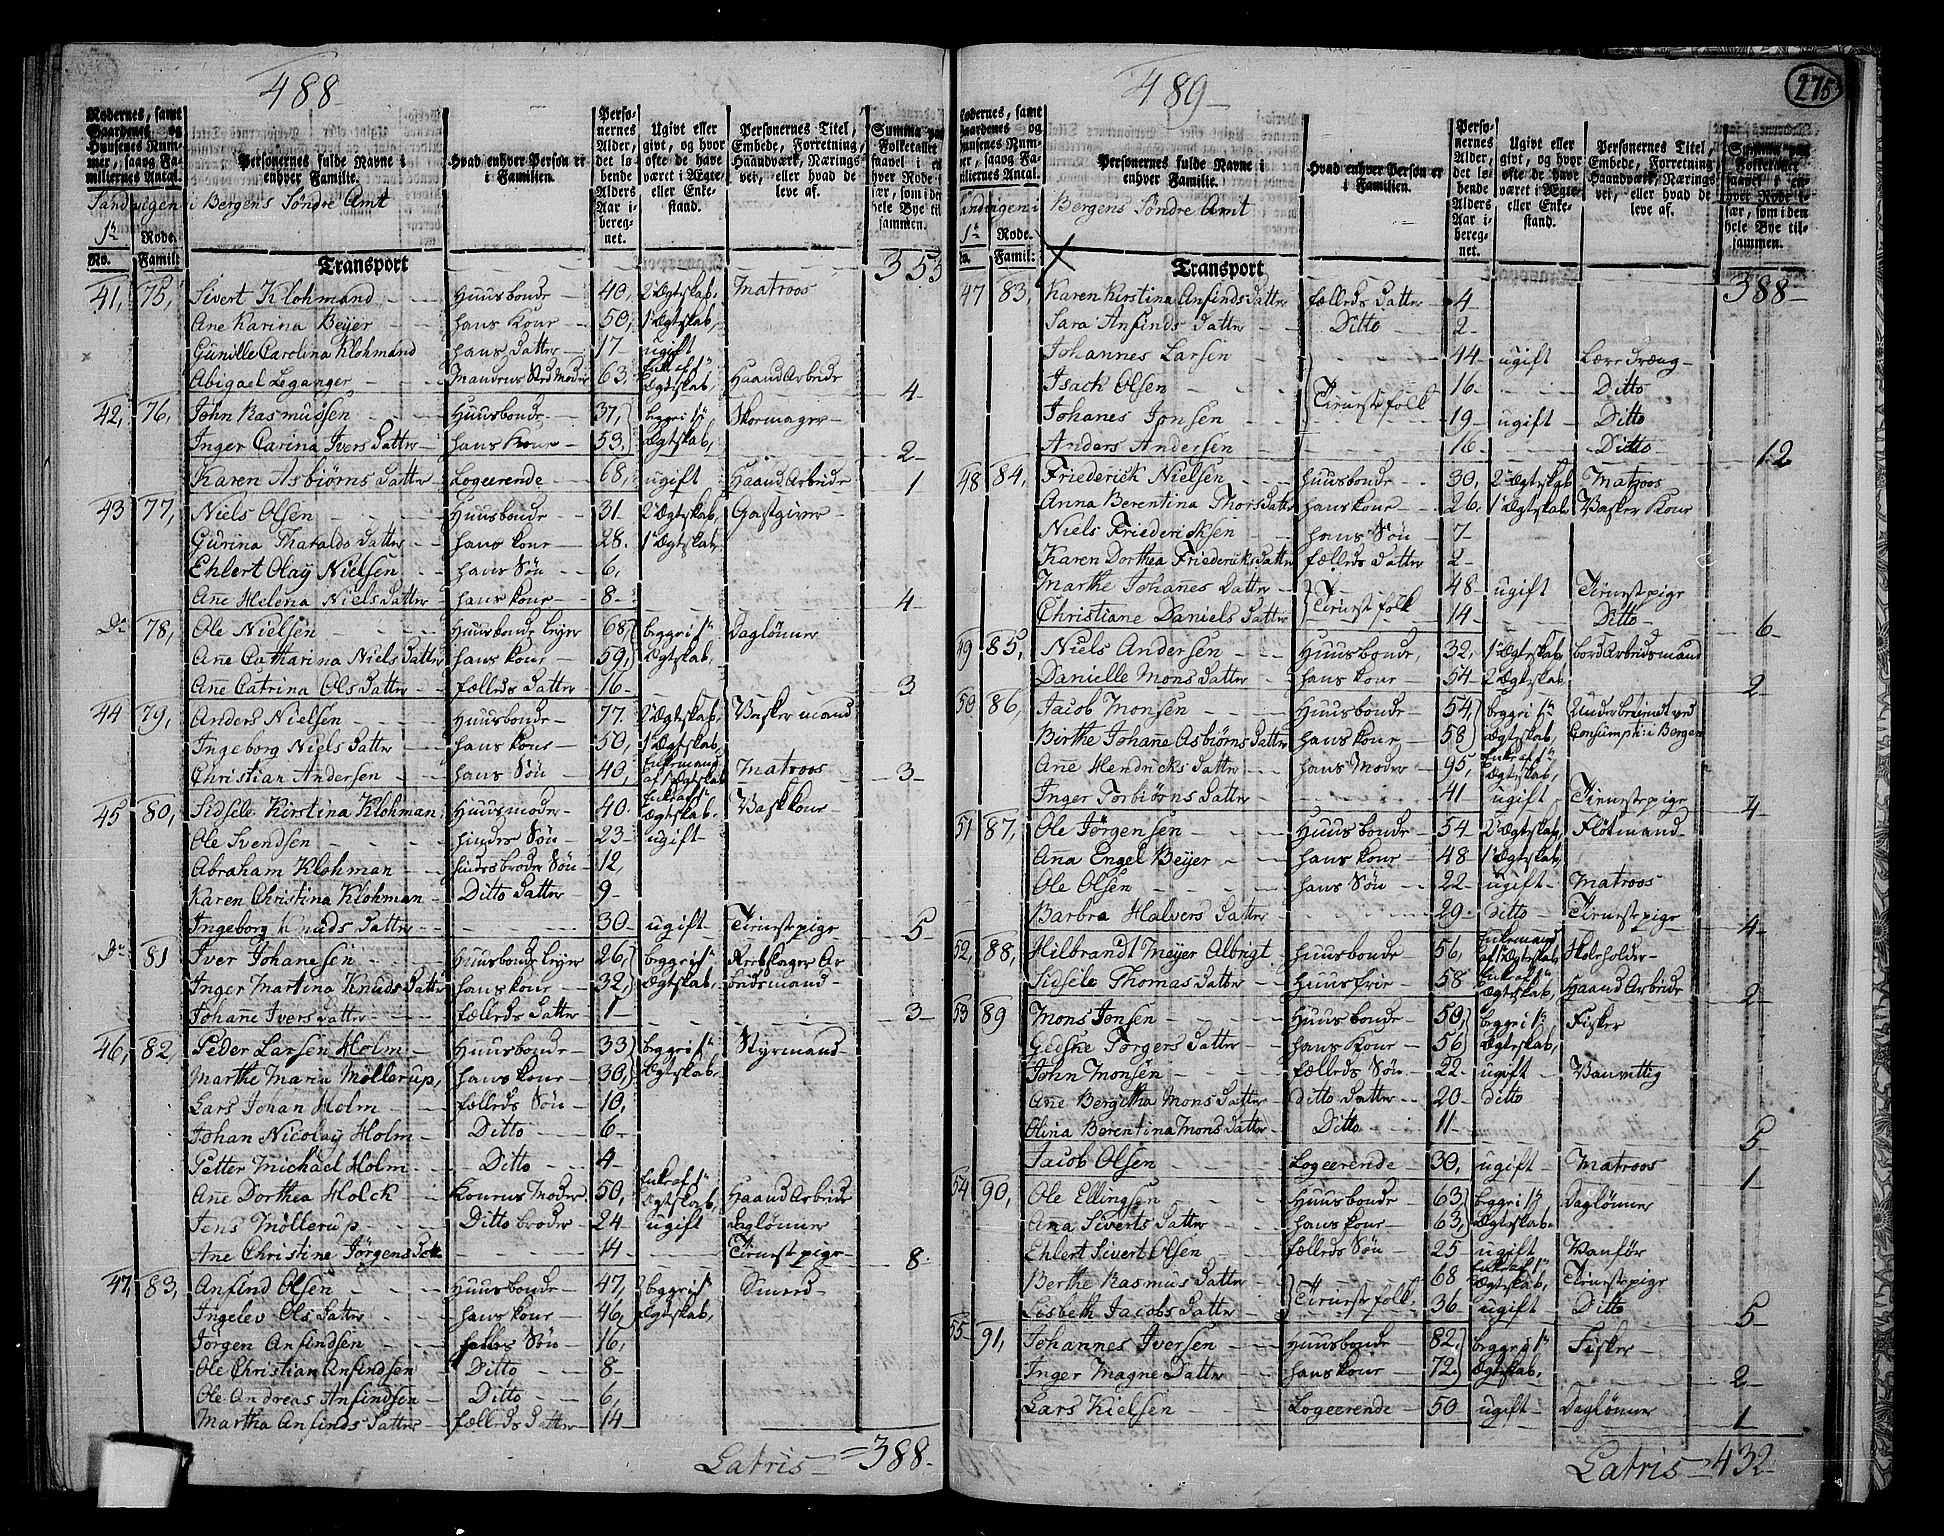 275
488
Rodernes, samt Gaardenes og Huusenes Nummer, saavog Familiernes Antal.
Personernes fulde Navne i enhver Familie.
Hvad enhver Person er i Familien.
Personernes Alder, det løbende Alders Aar iberegnet.
Ugivt eller givt, og hvor ofte de have været i Ægte- eller Enkestand.
Personernes Titel, Embede, Forretning, Haandværk, Næringsvei, eller hvad de leve af.
Sandvigen i Bergens Søndre Amt
1te Rode.
No. Famil:
Transport 353
41, 75, Sivert Klohmand Huusbonde 40, 2t Ægtskab, Matroos
Ane Karina Beÿer hans Kone 50, 1t Ægtskab,
Gunille Carolina Klohmand hans Datter 17 ugift
Abigael Leganger Mandens Sted Moder 63, Enke af 1t Ægtskab, Haand Arbeide 4
42, 76, John Rasmussen Huusbonde 37, begge i 1t Skomager
Inger Carina Ivers Datter hans Kone 53, Ægtskab, 2
Karen Asbiørns Datter Logeerende 68, ugift Haand Arbeide 1
43 77, Niels Olsen Huusbonde 31. 2t Ægtskab, Gastgiver
Gurina Haralds Datter hans kone 28. 1t Ægtskab,
Ehlert Olaÿ Nielsen hans Søn 6,
Ane Helena Niels Datter hans kone 8 4
Do 78, Ole Nielsen Huusbonde leyer 68, begge i 1t Daglønner
Ane Catharina Niels Datter hans kone 59, Ægtskab,
Ane Catrina Ols Datter fælleds Datter 16 3
44 79, Anders Nielsen Huusbonde 77. 2t Ægtskab, Vasker mand
Ingeborg Niels Datter hans kone 50, 1t Ægtskab,
Christian Andersen hans Søn 40, Enkemand af 1t Ægtskab Matroos 3
45 80, Sidsele Kirstina Klohman, Huusmoder 40. Enke af 1t Ægtskab, Vaskkone
Ole Svendsen hindes Søn 23 ugift
Abraham Klohman hindes broder Søn 12,
Karen Christina Klohman Ditto Datter 9
Ingeborg Knuds Datter 30. ugift Tieneste pige 5
Do 81 Iver Johanesen Huusbonde leyer 26, begge i 1t Rebslager Ar
Inger Martina Knuds Datter hans kone 32, Ægtskab, beidsmand
Johane Ivers Datter fælleds Datter 1 3
46, 82, Peder Larsen Holm Huusbonde 33 begge i 1t Styrmand
Marthe Maria Møllerup, hans kone 30, Ægtskab,
Lars Johan Holm fælleds Søn 10,
Johan Nicolaÿ Holm Ditto 6
Petter Michael Holm Ditto 4
Ane Dorthea Holck Konens Moder 50, Enke af 1t Ægtskab, Haand Arbeide
Jens Møllerup Ditto broder 24 ugift Daglønner
Ane Christine Jørgens Datt 14 Tieneste pige 8
47, 83, Anfind Olsen Huusbonde 47, begge i 1t Smed
Ingelev Ols Datter hans kone 46, Ægtskab,
Jørgen Anfindsen fælles Søn 16,
Ole Christian Anfindsen Ditto 8
Ole Andreas Anfindsen Ditto 6,
Martha Anfinds Datter fælleds Datter 14
Latris = 388.
489
Personernes fulde Navne i enhver Familie.
Hvad enhver Person er i Familien.
Personernes Alder, det løbende Alders Aar iberegnet.
Ugivt eller givt, og hvor ofte de have været i Ægte- eller Enkestand.
Personernes Titel, Embede, Forretning, Haandværk, Næringsvei, eller hvad de leve af.
Summa paa Folketallet saavel i enhver Rode især, som i den hele Bye tilsammen.
Sandvigen i Bergens Søndre Amt
1te Rode.
Famil:
Transport 388
47 83, Karen Kirstina Anfinds Datter fælleds Datter 4
Sara Anfinds Datter Ditto 2
Johannes Larsen Tieneste folk 44 ugift Lære dræng
Isach Olsen 16 Ditto
Johanes Jonsen 19 ugift Ditto
Anders Andersen 16 Ditto 12
48 84, Friederick Nielsen huusbonde 30, 2t Ægtskab Matroos
Anna Berentina Thors Datter hans kone 26. 1t Ægtskab Vasker Kone
Niels Friedericksen hans Søn 7
Karen Dorthea Friedericks Datter fælleds Datter 2
Marthe Johanes Datter Tienest folk 48 ugift Tieneste pige
Christiane Daniels Datter 14 Ditto 6
49 85, Niels Andersen Huusbonde 32, 1t Ægtskab, bord Arbeidsmand
Danielle Mons Datter hans kone 54 2t Ægtskab, 2
50 86, Jacob Monsen Huusbonde 54, begge i 1t Underbetient ved
Birthe Johane Asbiørns Datter hans kone 58 Ægtskab, Consumpt: i Bergen
Ane Hendricks Datter hans Moder 95, Enke af 1t Ægtskab,
Inger Torbiørns Datter 41 ugift Tieneste pige 4
51 87, Ole Jørgensen Huusbonde 54 2t Ægtskab, Fløtmand
Ana Engel Beÿer hans kone 48 1t Ægtskab,
Ole Olsen hans Søn 22 ugift Matroos
Barbra Halvers Datter 29 ditto Tieneste pige 4
52, 88, Hilbrandt Meÿer Albrigt huusbonde 56, Enkemand af 1t Ægtskab Skoleholder
Sidsele Thomas Datter Huusfrue 58 Enke af 1t Ægtskab, Haand Arbeide 2
53 89 Mons Jonsen Huusbonde 50, begge i 1t Fisker
Gedske Torgers Datter hans Kone 56 Ægtskab,
John Monsen fælleds Søn 22 ugift Vanvittig
Ane Bergitha Mons Datter ditto Datter 20 ditto
Olina Berentina Mons Datter Ditto 11 5
Jacob Olsen Logeerende 30, ugift Matroos 1
54 90, Ole Ellingsen Huusbonde 63 begge i 1t Daglønner
Ana Siverts Datter hans kone 63, Ægtskab
Ehlert Sivert Olsen fælleds Søn 25 ugift Vanfør
Berthe Rasmus Datter Tieneste folk, 68 Enke af 1t Ægtskab, Tieneste pige
Lisbeth Jacobs Datter 36 ugift Ditto 5
55 91, Johannes Iversen Huusbonde 82, begge i 1t Fisker
Inger Magne Datter hans kone 72 Ægtskab, 2
Lars Nielsen Logeerende 50 ugift Daglønner 1
Latris = 432